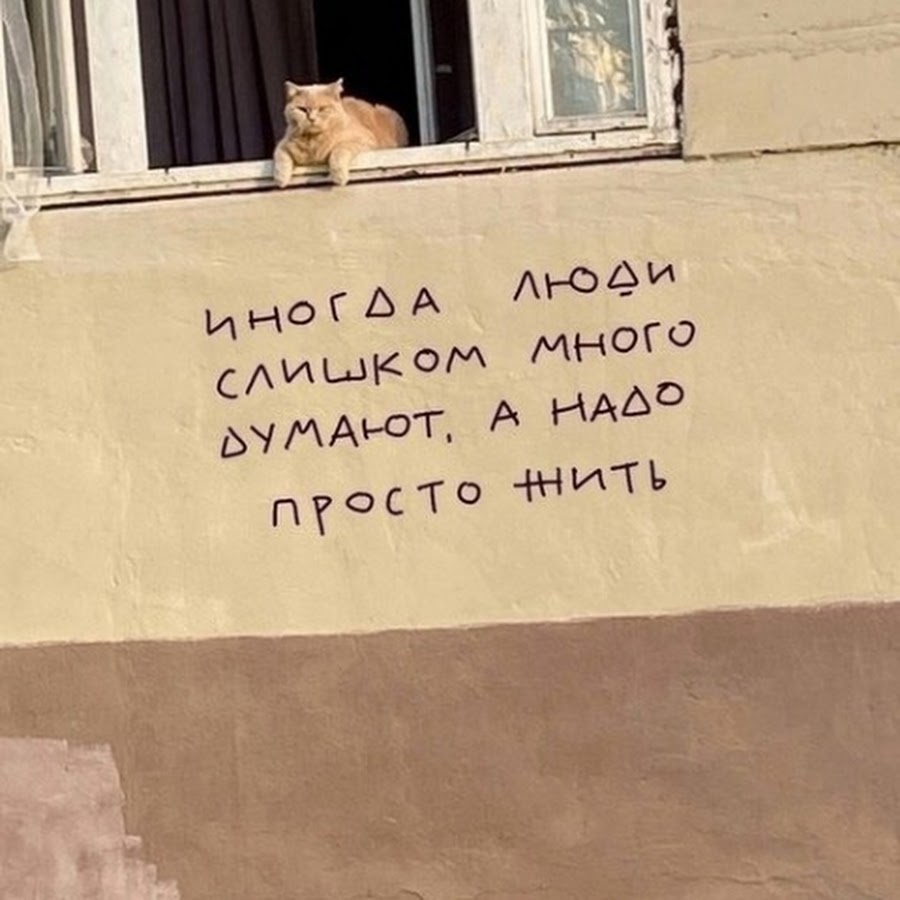 ИНОГДА ЛЮДИ
СЛИШКОМ МНОГО
ДУМАЮТ, А НАДО
ПРОСТО ЖИТЬ